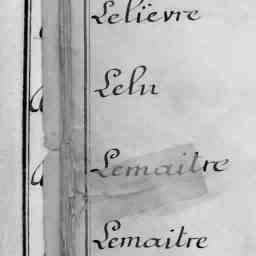 Lelïevre
Lelu
Lemaitre
Lemaitre